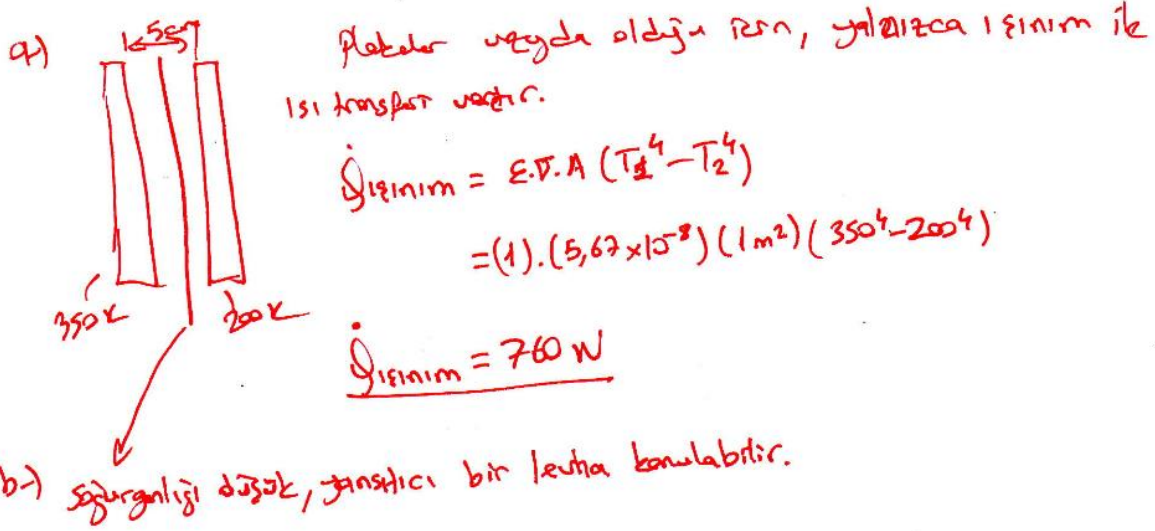 a-) 5cm
Plakalar uzayda olduğu için, yalnızca ışınım ile
ısı transferi vardır.
Q̇ışınım = ε.σ.A (T₁⁴-T₂⁴)
=(1).(5,67x10⁻⁸)(1m²)(350⁴-200⁴)
350K 200K
Q̇ışınım = 760 W
b-) soğurganlığı düşük, yansıtıcı bir levha konulabilir.